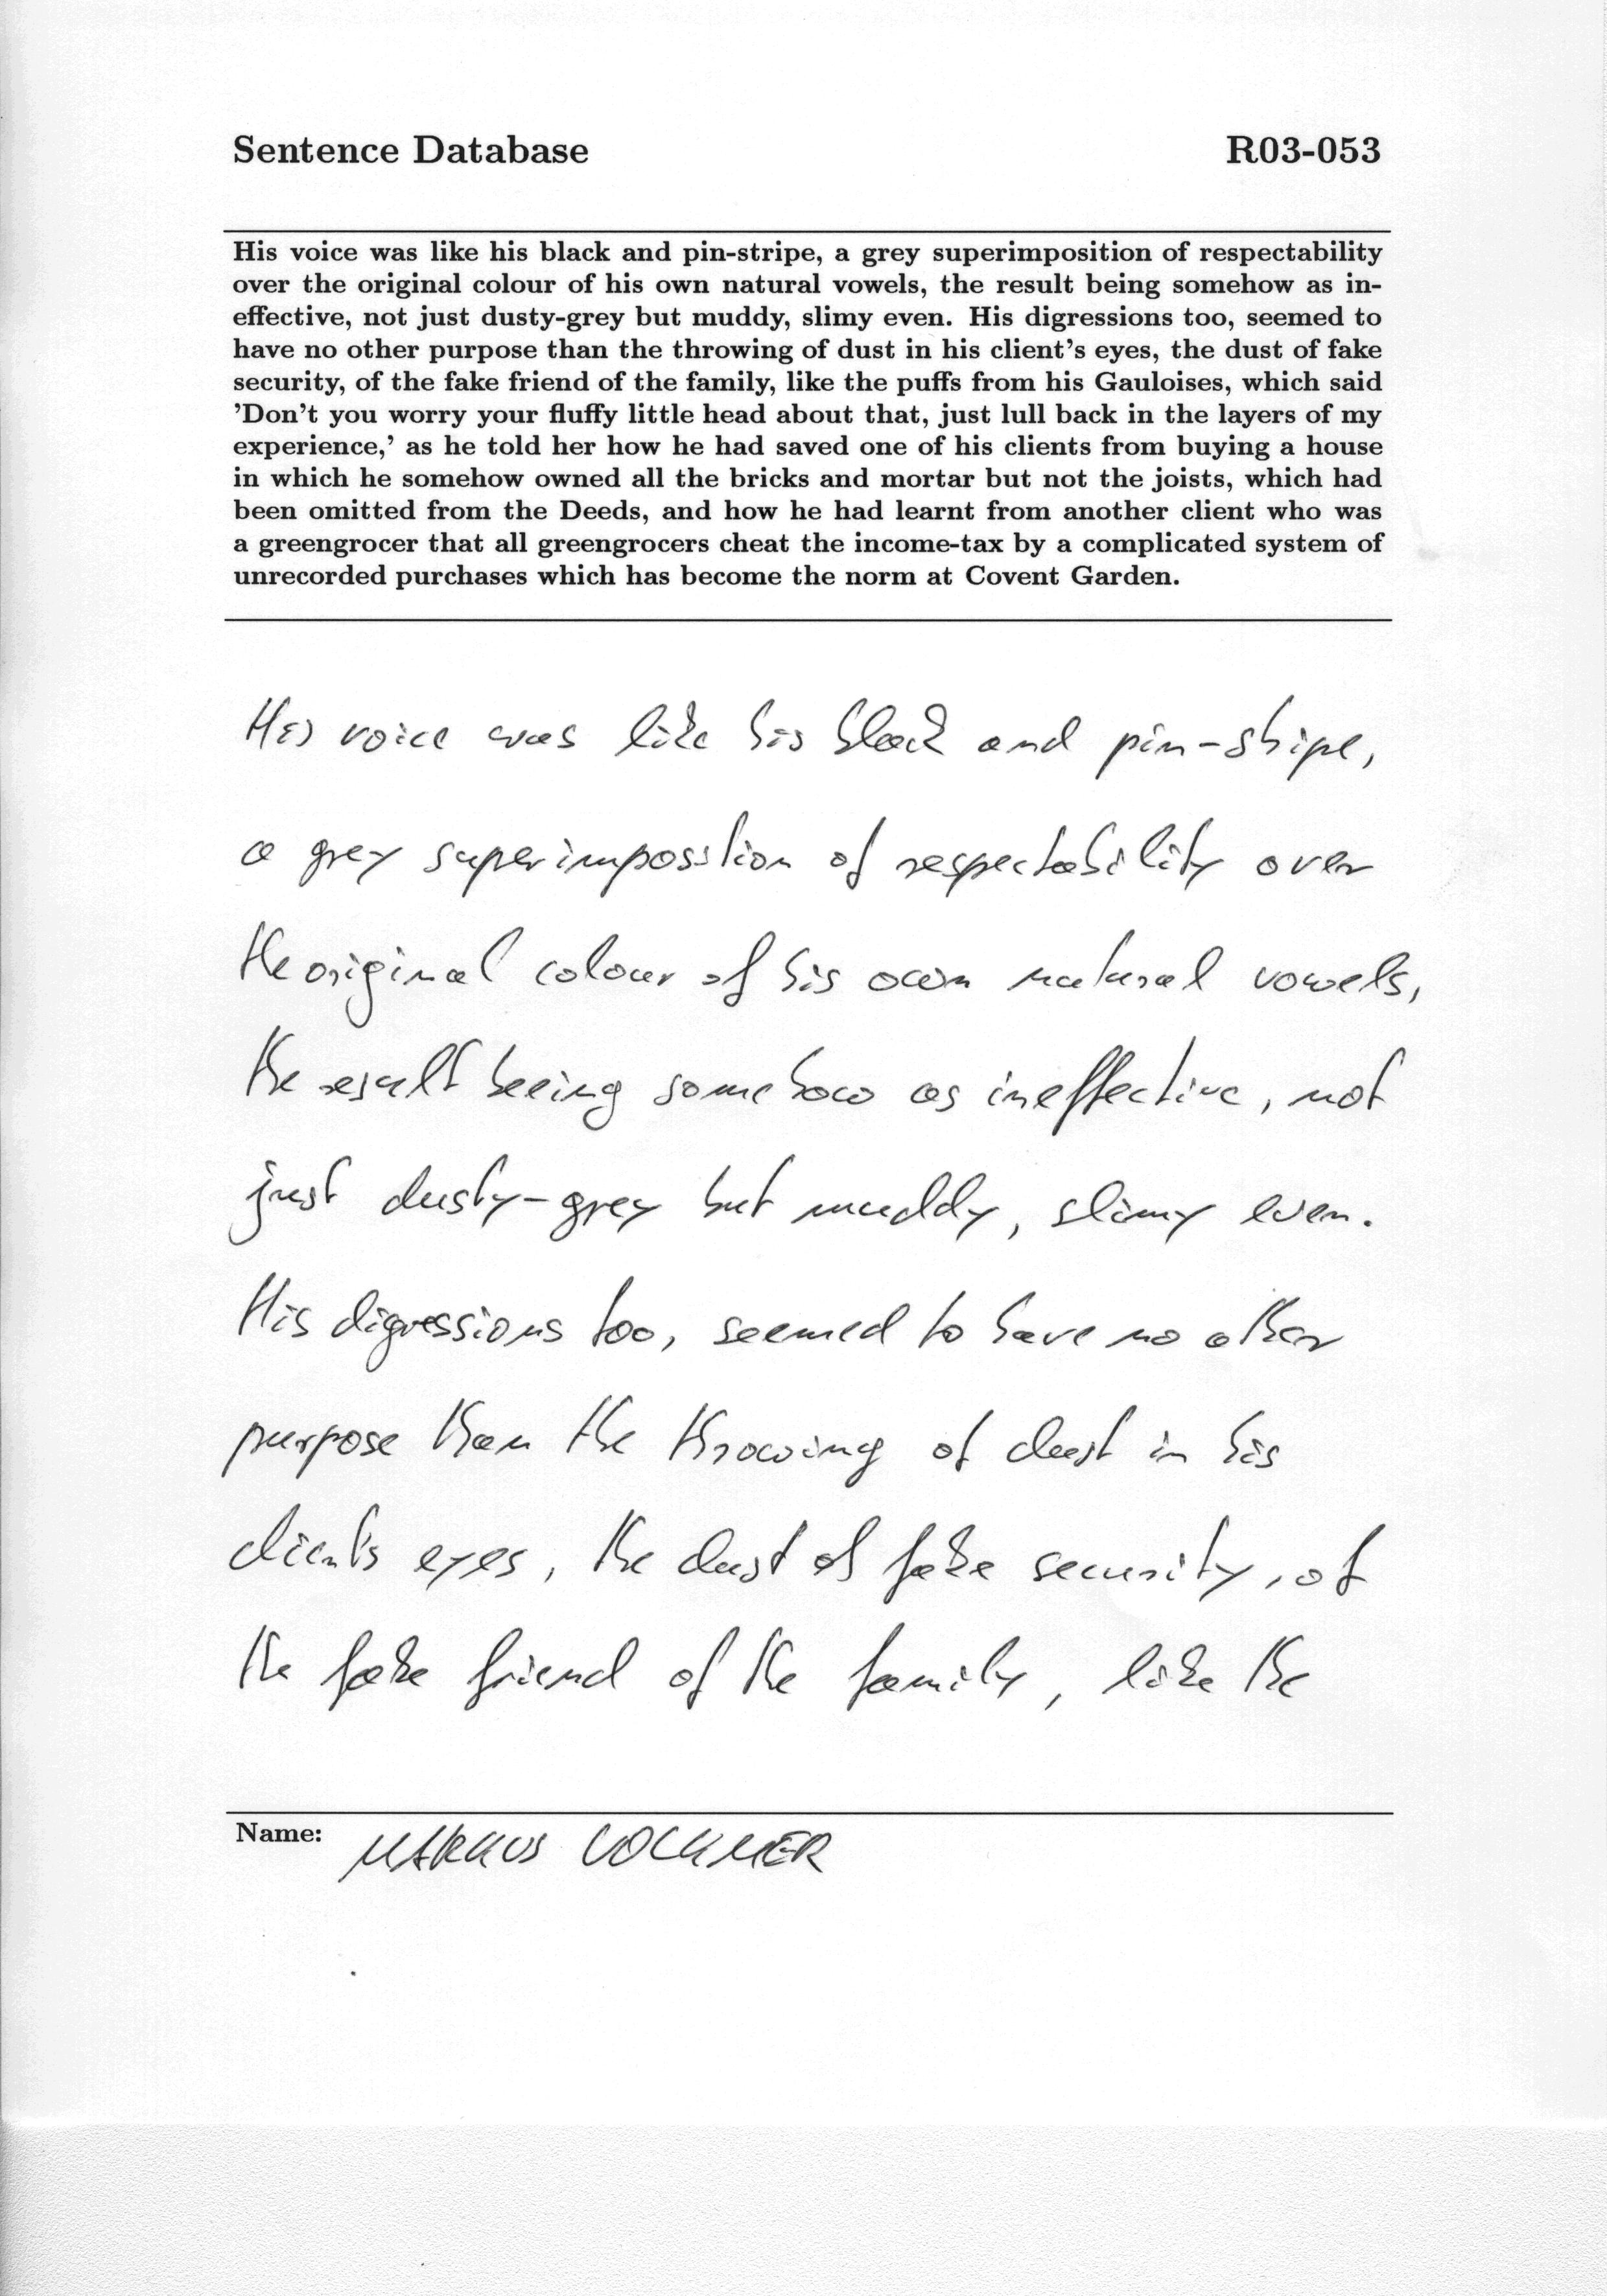 Sentence Database R03-053
His voice was like his black and pin-stripe, a grey superimposition of respectability
over the original colour of his own natural vowels, the result being somehow as in-
effective, not just dusty-grey but muddy, slimy even. His digressions too, seemed to
have no other purpose than the throwing of dust in his client's eyes, the dust of fake
security, of the fake friend of the family, like the puffs from his Gauloises, which said
'Don't you worry your fluffy little head about that, just lull back in the layers of my
experience,' as he told her how he had saved one of his clients from buying a house
in which he somehow owned all the bricks and mortar but not the joists, which had
been omitted from the Deeds, and how he had learnt from another client who was
a greengrocer that all greengrocers cheat the income-tax by a complicated system of
unrecorded purchases which has become the norm at Covent Garden.
His voice was like his black and pin-stripe,
a grey superimposition of respectability over
the original colour of his own natural vowels,
the result beeing somehow as ineffective, not
just dusty-grey but muddy, slimy even.
His digressions too, seemed to have no other
purpose than the throwing of dust in his
client's eyes, the dust of fake security, of
the fake friend of the family, like the
Name: MARKUS VOLKMER